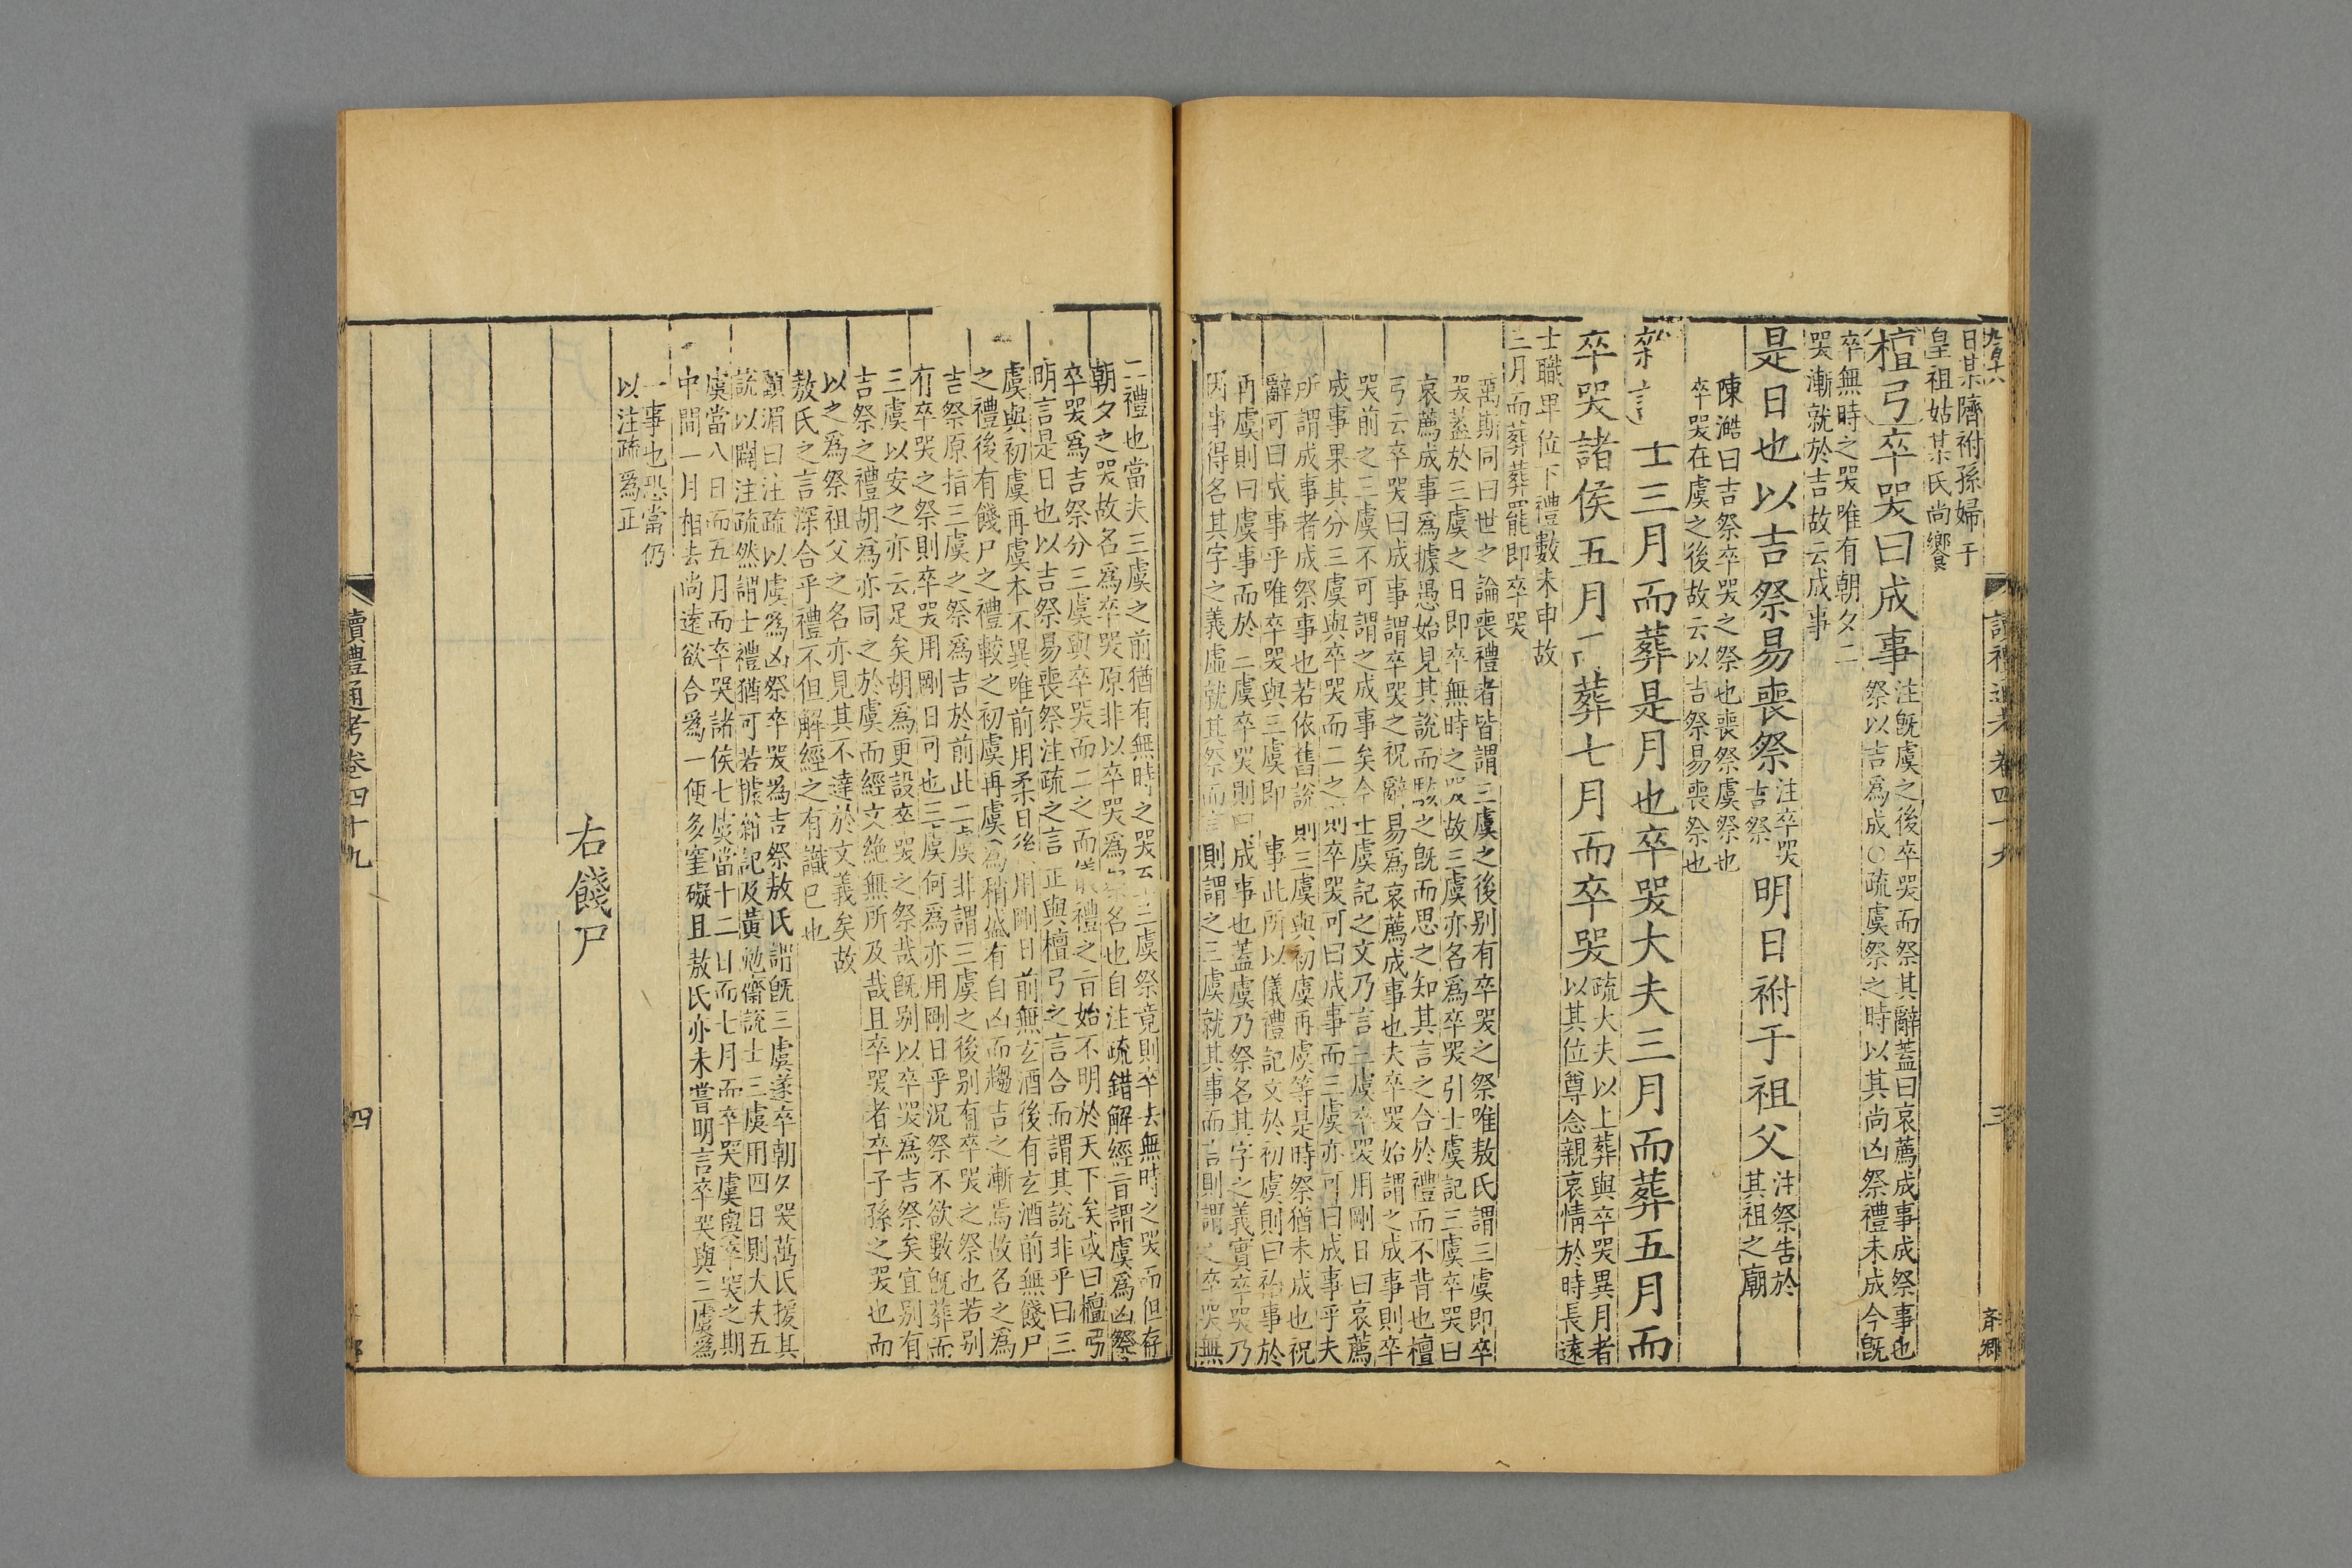 日某隮祔孫婦于
皇祖姑某氏尚饗
檀弓卒哭曰成事
注旣虞之後卒哭而祭其辭蓋曰哀薦成事成祭事也
祭以吉爲成○疏虞祭之時以其尚凶祭禮未成今旣
卒無時之哭唯有朝夕二
哭漸就於吉故云成事
是日也以吉祭易喪祭
注卒哭
吉祭
明日祔于祖父
注祭告於
其祖之廟
陳澔曰吉祭卒哭之祭也喪祭虞祭也
卒哭在虞之後故云以吉祭易喪祭也
士三月而葬是月也卒哭大夫三月而葬五月而
卒哭諸侯五月而葬七月而卒哭
疏大夫以上葬與卒哭異月者
以其位尊念親哀情於時長遠
士職卑位下禮數未申故
三月而葬葬罷即卒哭
萬斯同曰世之論喪禮者皆謂三虞之後别有卒哭之祭唯敖氏謂三虞即卒
哭蓋於三虞之日即卒無時之哭故三虞亦名爲卒哭引士虞記三虞卒哭曰
哀薦成事爲據愚始見其說而駭之旣而思之知其言之合於禮而不背也檀
弓云卒哭曰成事謂卒哭之祝辭易爲哀薦成事也夫卒哭始謂之成事則卒
哭前之三虞不可謂之成事矣今士虞記之文乃言三虞卒哭用剛日曰哀薦
成事果其分三虞與卒哭而二之則卒哭可曰成事而三虞亦可曰成事乎夫
所謂成事者成祭事也若依舊說則三虞與初虞再虞等是時祭猶未成也祝
辭可曰成事乎唯卒哭與三虞即事此所以儀禮記文於初虞則曰祫事於
再虞則曰虞事而於三虞卒哭則曰成事也蓋虞乃祭名其字之義實卒哭乃
因事得名其字之義虛就其祭而言則謂之三虞就其事而言則謂之卒哭無
讀禮通考卷四十九
三
二禮也當夫三虞之前猶有無時之哭至三虞祭竟則卒去無時之哭而但存
朝夕之哭故名爲卒哭原非以卒哭爲祭名也自注疏錯解經言謂虞爲凶祭
卒哭爲吉祭分三虞與卒哭而二之而儀禮之言始不明於天下矣或曰檀弓
明言是日也以吉祭易喪祭注疏之言正與檀弓之言合而謂其說非乎曰三
虞與初虞再虞本不異唯前用柔日後用剛日前無玄酒後有玄酒前無餞尸
之禮後有餞尸之禮較之初虞再虞爲稍盛有自凶而趨吉之漸焉故名之爲
吉祭原指三虞之祭爲吉於前此二虞非謂三虞之後别有卒哭之祭也若别
有卒哭之祭則卒哭用剛日可也三虞何爲亦用剛日乎況祭不欲數旣葬而
三虞以安之亦云足矣胡爲更設卒哭之祭哉旣别以卒哭爲吉祭矣宜别有
吉祭之禮胡爲亦同之於虞而經文絶無所及哉且卒哭者卒子孫之哭也而
以之爲祭祖父之名亦見其不達於文義矣故
敖氏之言深合乎禮不但解經之有識已也
顧湄曰注疏以虞爲凶祭卒哭爲吉祭敖氏謂旣三虞遂卒朝夕哭萬氏援其
說以闢注疏然謂士禮猶可若據雜記及黃勉齋說士三虞用四日則大夫五
虞當八日而五月而卒哭諸侯七虞當十二日而七月而卒哭虞與卒哭之期
中間一月相去尚遠欲合爲一便多窒礙且敖氏亦未嘗明言卒哭與三虞爲
一事也恐當仍
以注疏爲正
右餞尸
讀禮通考卷四十九
四